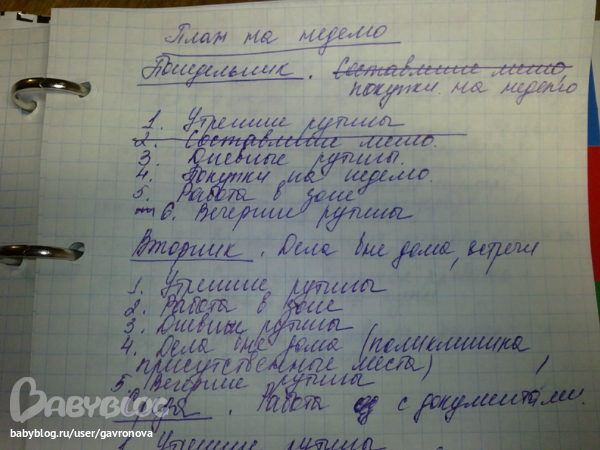 План на неделю
Понедельник. Составление меню,
покупки на неделю
1. Утренние рутины
2. Составление меню.
3. Дневные рутины.
4. Покупки на неделю.
5. Работа в зоне
6. Вечерние рутины
Вторник. Дела вне дома, встречи
1. Утренние рутины
2. Работа в зоне
3. Дневные рутины
4. Дела вне дома (поликлиника
присутственные места)
5. Вечерние рутины
Среда. Работа с документами.
1. Утренние рутины
BABYBLOG
babyblog.ru/user/gavronova